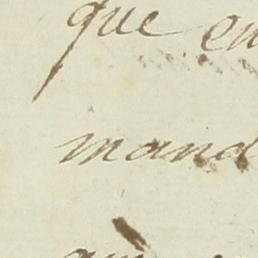 que en
mand